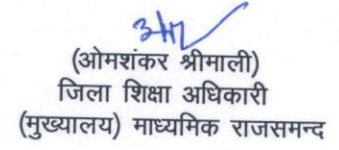 (ओमशंकर श्रीमाली)
जिला शिक्षा अधिकारी
(मुख्यालय) माध्यमिक राजसमन्द